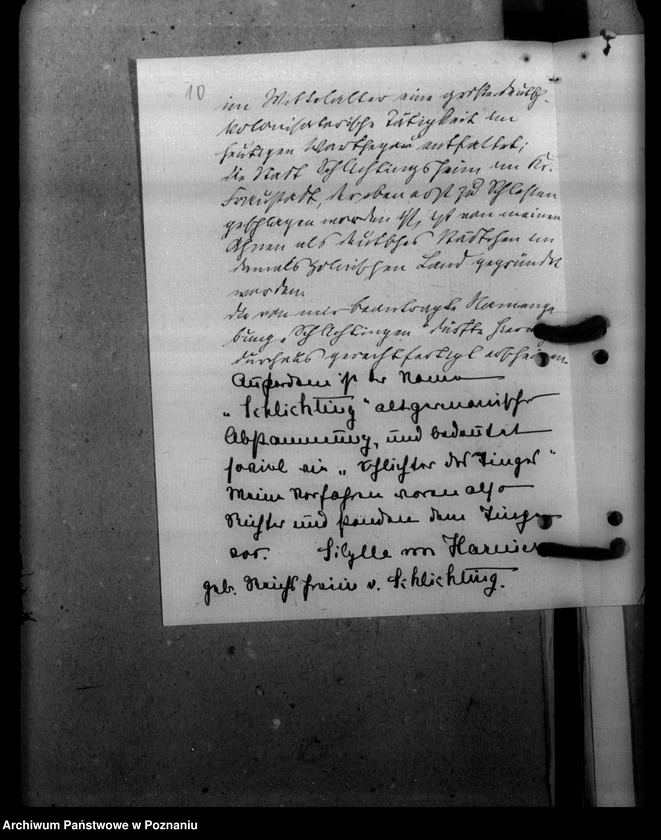 10
im Mittelalter eine große deutsch-
kolonisatorische Tätigkeit im
heutigen Warthegau entfaltet;
die Stadt Schlichtingsheim im Kr.
Fraustadt, der eben erst zu Schlesien
geschlagen worden ist, ist von meinen
Ahnen als deutsches Städtchen im
damals polnischen Land gegründet
worden.
Die von mir beantragte Namenge
bung „Schlichtingen" dürfte
durchaus gerechtfertigt erscheinen.
Außerdem ist der Name
„Schlichting" altgermanischer
Abstammung, und bedeutet
soviel wie „Schlichter des Dinges"
Meine Vorfahren waren also
Richter und standen dem Dinge
vor. Sibylle von Harnier
geb. Reichsfreiin v. Schlichting.
Archiwum Państwowe w Poznaniu